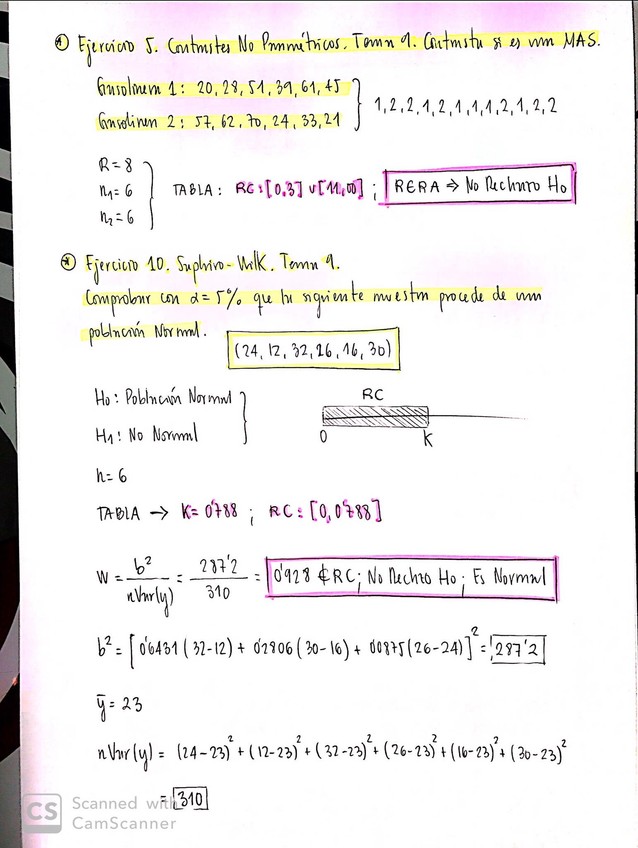 * Ejercicio 5. Contrastes No Paramétricos. Tema 9. Contrasta si es un MAS.
Gasolinera 1: 20, 28, 51, 39, 61, 45
Gasolinera 2: 57, 62, 70, 24, 33, 21
1, 2, 2, 1, 2, 1, 1, 1, 2, 1, 2, 2
R = 8
n1 = 6
n2 = 6
TABLA: RC: [0,3] ∪ [11,∞) ; RERA ⇒ No Rechazo H0
* Ejercicio 10. Saphiro-Wilk. Tema 9.
Comprobar con α = 5% que la siguiente muestra procede de una
población Normal.
(24, 12, 32, 26, 16, 30)
H0: Población Normal
H1: No Normal
RC
0 K
n = 6
TABLA → K = 0'788 ; RC: [0, 0'788]
W = b² / nVar(y) = 287'2 / 310 = 0'928 ∉ RC ; No Rechazo H0 ; Es Normal
b² = [0'6431 (32-12) + 0'2806 (30-16) + 0'0875 (26-24)]² = 287'2
ȳ = 23
nVar(y) = (24-23)² + (12-23)² + (32-23)² + (26-23)² + (16-23)² + (30-23)²
= 310
CS Scanned with
CamScanner